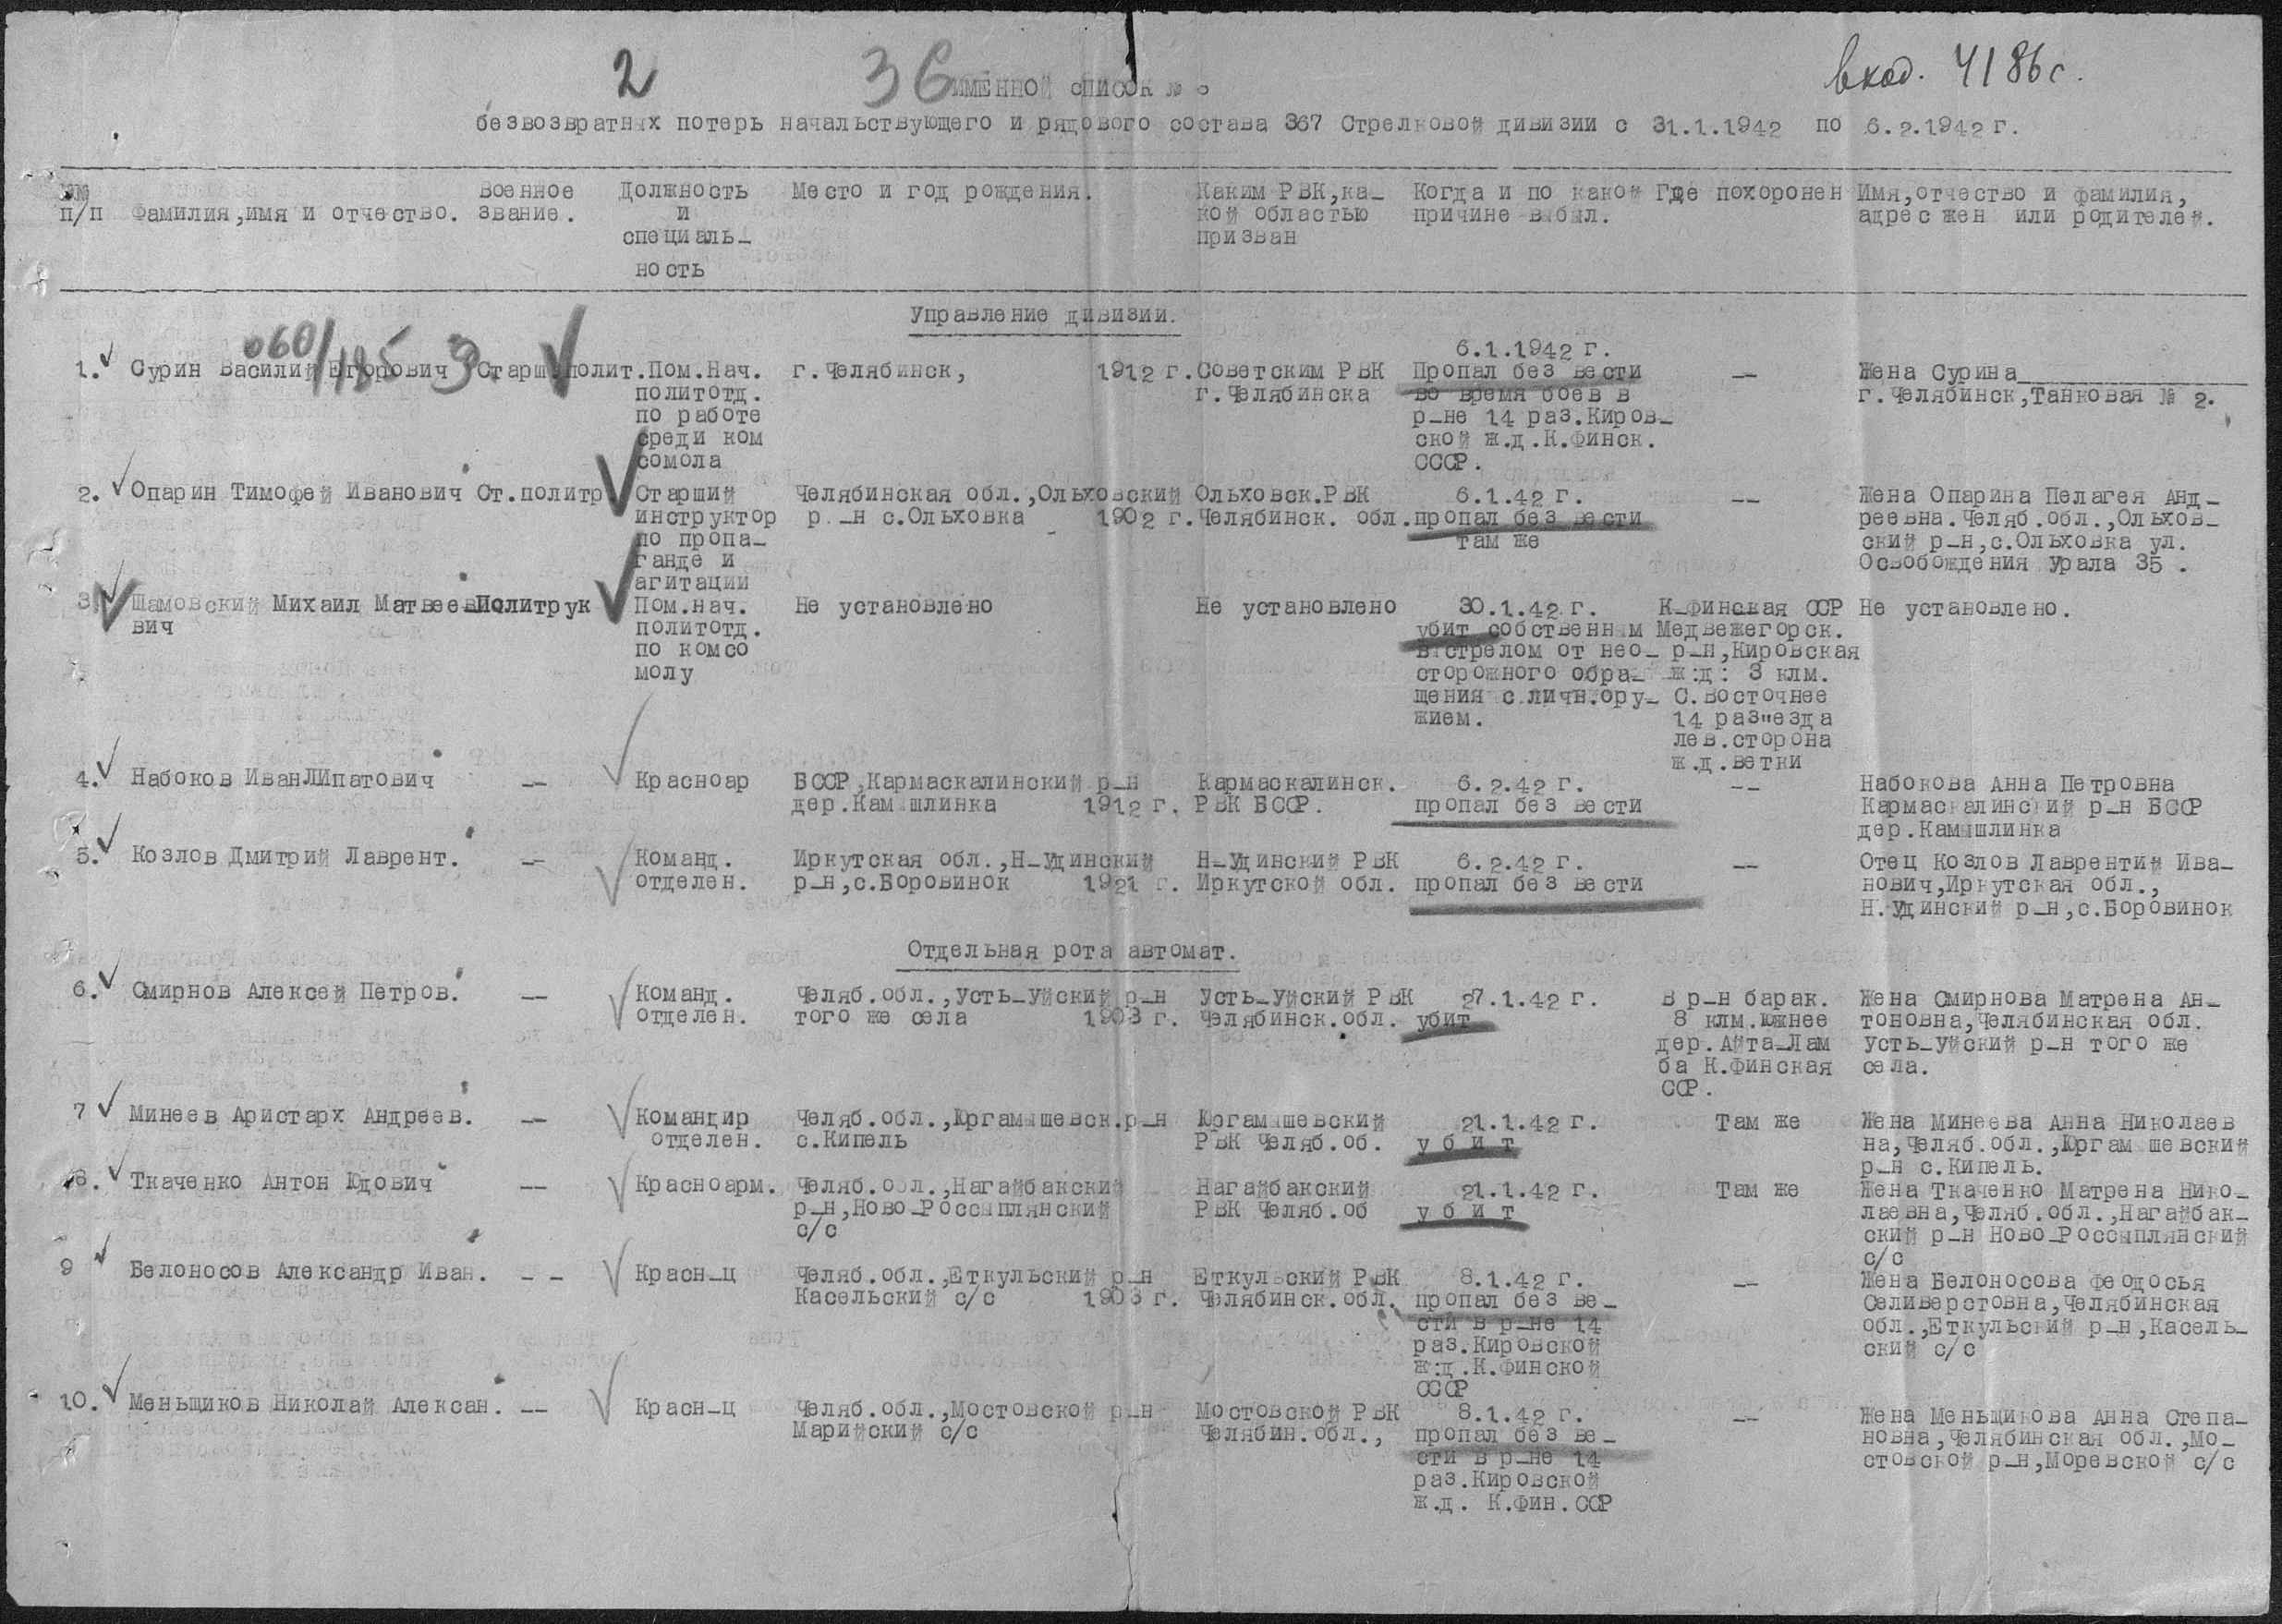 2 36 вход. 4186с.
ИМЕННОЙ СПИСОК №
безвозвратных потерь начальствующего и рядового состава 367 Стрелковой дивизии с 31.1.1942 по 6.2.1942 г.
№№ п/п
Фамилия,имя и отчество.
Военное звание.
Должность и специаль- ность
Место и год рождения.
Каким РВК,ка- кой областью призван
Когда и по какой причине выбыл.
Где похоронен
Имя,отчество и фамилия, адрес жен или родителей.
Управление дивизии.
060/185 Э
1. Сурин Василий Егорович
Старш.полит.
Пом.Нач.
политотд.
по работе
среди ком
сомола
г.Челябинск, 1912 г.
Советским РВК
г.Челябинска
6.1.1942 г.
Пропал без вести
во время боев в
р-не 14 раз.Киров-
ской ж.д.К.Финск.
СССР.
--
Жена Сурина
г.Челябинск,Танковая № 2.
2. Опарин Тимофей Иванович
Ст.политр
Старший
инструктор
по пропа-
ганде и
агитации
Челябинская обл.,Ольховский
р.-н с.Ольховка 1902 г.
Ольховск.РВК
Челябинск. обл.
6.1.42 г.
пропал без вести
там же
--
Жена Опарина Пелагея Анд-
реевна.Челяб.обл.,Ольхов-
ский р-н,с.Ольховка ул.
Освобождения Урала 35 .
3. Шамовский Михаил Матвее
вич
Политрук
Пом.нач.
политотд.
по комсо
молу
Не установлено
Не установлено
30.1.42 г.
убит собственным
выстрелом от нео-
сторожного обра-
щения с личн.ору-
жием.
К-Финская ССР
Медвежегорск.
р-н,Кировская
ж.д: 3 клм.
С.Восточнее
14 раз"езда
лев.сторона
ж.д.ветки
Не установлено.
4. Набоков ИванЛИпатович
--
Красноар
БССР,Кармаскалинский р-н
дер.Камышлинка 1912 г.
Кармаскалинск.
РВК БССР.
6.2.42 г.
пропал без вести
--
Набокова Анна Петровна
Кармаскалинский р-н БССР
дер.Камышлинка
5. Козлов Дмитрий Лаврент.
--
Команд.
отделен.
Иркутская обл.,Н-Удинский
р-н,с.Боровинок 1921 г.
Н-Удинский РВК
Иркутской обл.
6.2.42 г.
пропал без вести
--
Отец Козлов Лаврентий Ива-
нович,Иркутская обл.,
Н.Удинский р-н,с.Боровинок
Отдельная рота автомат.
6. Смирнов Алексей Петров.
--
Команд.
отделен.
Челяб.обл.,Усть-Уйский р-н
того же села 1903 г.
Усть-Уйский РВК
Челябинск.обл.
27.1.42 г.
убит
В р-н барак.
8 клм.Южнее
дер.Айта-Лам
ба К.Финская
ССР.
Жена Смирнова Матрена Ан-
тоновна,Челябинская обл.
Усть-Уйский р-н того же
села.
7 Минеев Аристарх Андреев.
--
Командир
отделен.
Челяб.обл.,Юргамышевск.р-н
с.Кипель
Юргамышевский
РВК Челяб.об.
21.1.42 г.
у б и т
Там же
Жена Минеева Анна Николаев
на,Челяб.обл.,Юргамышевский
р-н с.Кипель.
8. Ткаченко Антон Юдович
--
Красноарм.
Челяб.обл.,Нагайбакский
р-н,Ново-Россыплянский
с/с
Нагайбакский
РВК Челяб.об
21.1.42 г.
у б и т
Там же
Жена Ткаченко Матрена Нико-
лаевна,Челяб.обл.,Нагайбак-
ский р-н Ново-Россыплянский
с/с
9 Белоносов Александр Иван.
- -
Красн-ц
Челяб.обл.,Еткульский р-н
Касельский с/с 1903 г.
Еткульский РВК
Челябинск.обл.
8.1.42 г.
пропал без ве-
сти в р-не 14
раз.Кировской
ж.д.К.Финской
СССР
--
Жена Белоносова Феодосья
Селиверстовна,Челябинская
обл.,Еткульский р-н,Касель-
ский с/с
10. Меньщиков Николай Алексан.
--
Красн-ц
Челяб.обл.,Мостовской р-н
Марийский с/с
Мостовской РВК
Челябин.обл.,
8.1.42 г.
пропал без ве-
сти в р-не 14
раз.Кировской
ж.д. К.Фин.ССР
--
Жена Меньщикова Анна Степа-
новна,Челябинская обл.,Мо-
стовской р-н,Моревской с/с